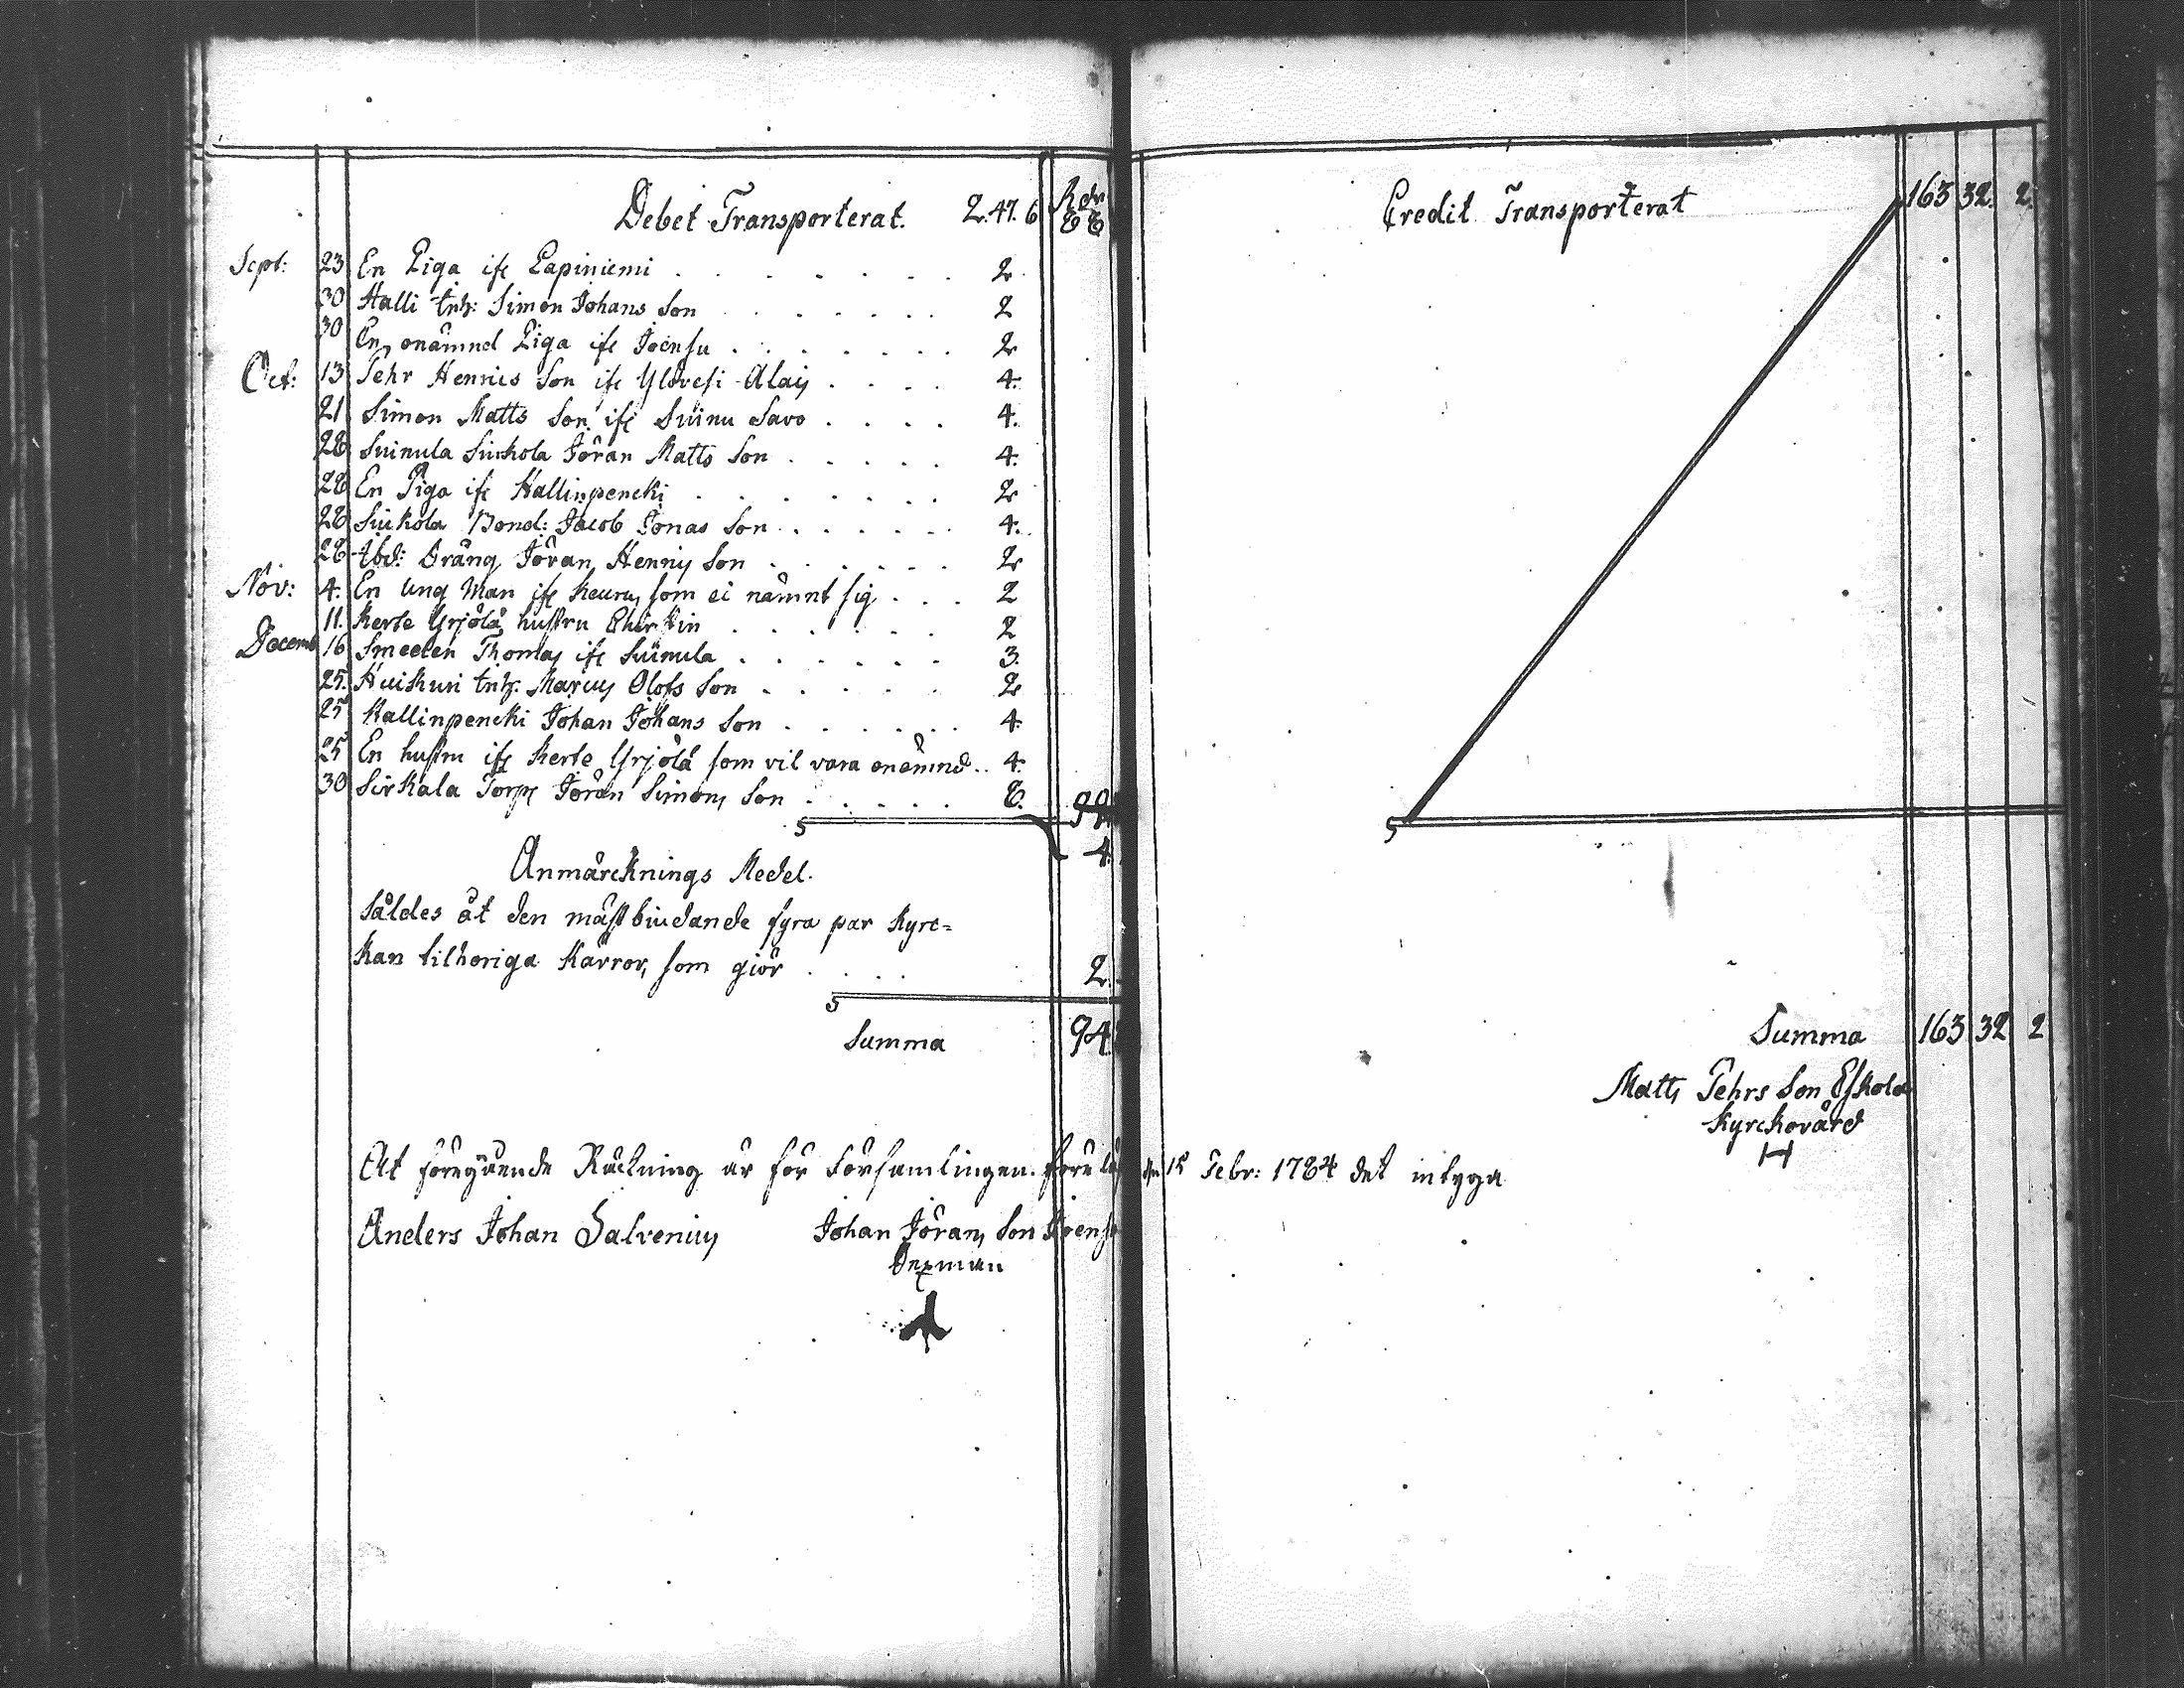 Debet Transporterat. 2.47.6 Rdr
Sept: 23 En Piga ifr Lapiniemi 2
30 Halli Inh: Simon Johans Son 2
30 En onämnd Piga ifr Joensu 2
Oct: 13 Pehr Henrics Son ifr Ylövesi Alaij 4.
21 Simon Matts Son ifr Suinu Savo 4.
28 Suinula Sirkola Jöran Matts Son 4.
28 En Piga ifr Hallinpencki 2
28 Sirkola Bond: Jacob Jonas Son 4.
28 Ibd: Dräng Jöran Henrics Son 2
Nov: 4. En Ung Man ifr Keuru, som ei nämnt sig 2
11. Kerte Yrjölä hustru 2
Decemb 16 Smeden Thomas ifr Suinula 3.
25. Huikuri Inh: Marcus Olofs Son 2
25 Kallinpencki Johan Johans Son 4.
25 En hustru ifr Kerte Yrjölä som vil vara onämnd 4.
30 Sirkala Torp: Jöran Simons Son 8.
4.
Anmärcknings Medel.
Såldes åt den mästbiudande fyra par Kyrc-
kan tilhöriga Kärror, som giör 2.
Summa 94.
Credit Transporterat 163 32. 2.
Summa 163 32 2
Matts Pehrs Son Eskola
Kyrckovärd
H
At föregående Räckning är för Församlingen 15 Febr: 1784 det intyga
Anders Johan Salvenius Johan Jörans Son
Sexman